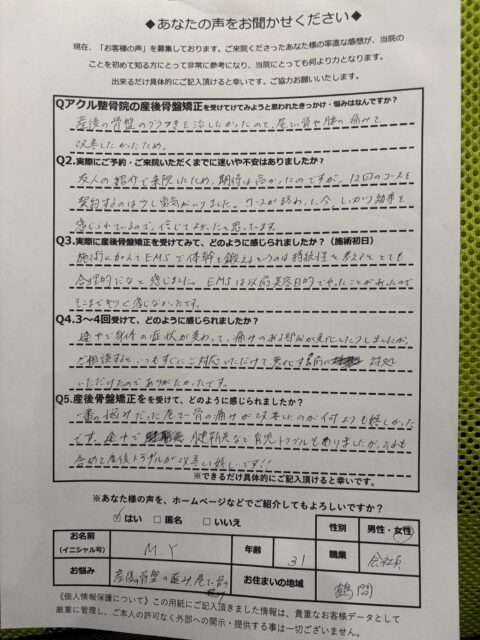 ◆あなたの声をお聞かせください◆
現在、「お客様の声」を募集しております。ご来院くださったあなた様の率直な感想が、当院の
ことを初めて知る方にとって非常に参考になり、当院にとっても何より力となります。
出来るだけ具体的にご記入頂けると幸いです。ご協力お願いいたします。
Qアクル整骨院の産後骨盤矯正を受けてけてみようと思われたきっかけ・悩みはなんですか?
産後の骨盤のグラつきを治したかったのと、尾てい骨や腰の痛みを
改善したかったため。
Q2.実際にご予約・ご来院いただくまでに迷いや不安はありましたか?
友人の紹介で来院したため、期待は高かったのですが、12回のコースを
契約するのは少し勇気がいりました。コースが終わった今、しっかり効果を
感じられているので、信じてよかったと思っています。
Q3.実際に産後骨盤矯正を受けてみて、どのように感じられましたか?(施術初日)
施術に加えてEMSで体幹を鍛えるというのは持続性を考えるととても
合理的だなと感じました。EMSは以前美容目的でやったことがあったので
そこまでキツく感じなかったです。
Q4.3~4回受けて、どのように感じられましたか?
途中で身体の症状が変わって、痛みのある部分が変化したりしましたが、
ご相談するといつもすぐにご対応いただけて悪化する前に 対処
いただけたのでありがたかったです。
Q5.産後骨盤矯正をを受けて、どのように感じられましたか?
一番の悩みだった尾てい骨の痛みが改善したのが何よりも嬉しかった
です。途中で 腱鞘炎など育児トラブルもありましたが、それも
含めて産後トラブルが改善し嬉しいです!!
※できるだけ具体的にご記入頂けると幸いです。
※あなた様の声を、ホームページなどでご紹介してもよろしいですか?
☑はい □匿名 □いいえ 性別 男性・女性
お名前 (イニシャル可) M.Y 年齢 31 職業 会社員
お悩み 産後の骨盤の歪み,尾てい骨の お住まいの地域 鶴間
《個人情報保護について》この用紙にご記入頂きました情報は、貴重なお客様データとして
厳重に管理し、ご本人の許可なく外部への開示・提供する事は一切ございません。